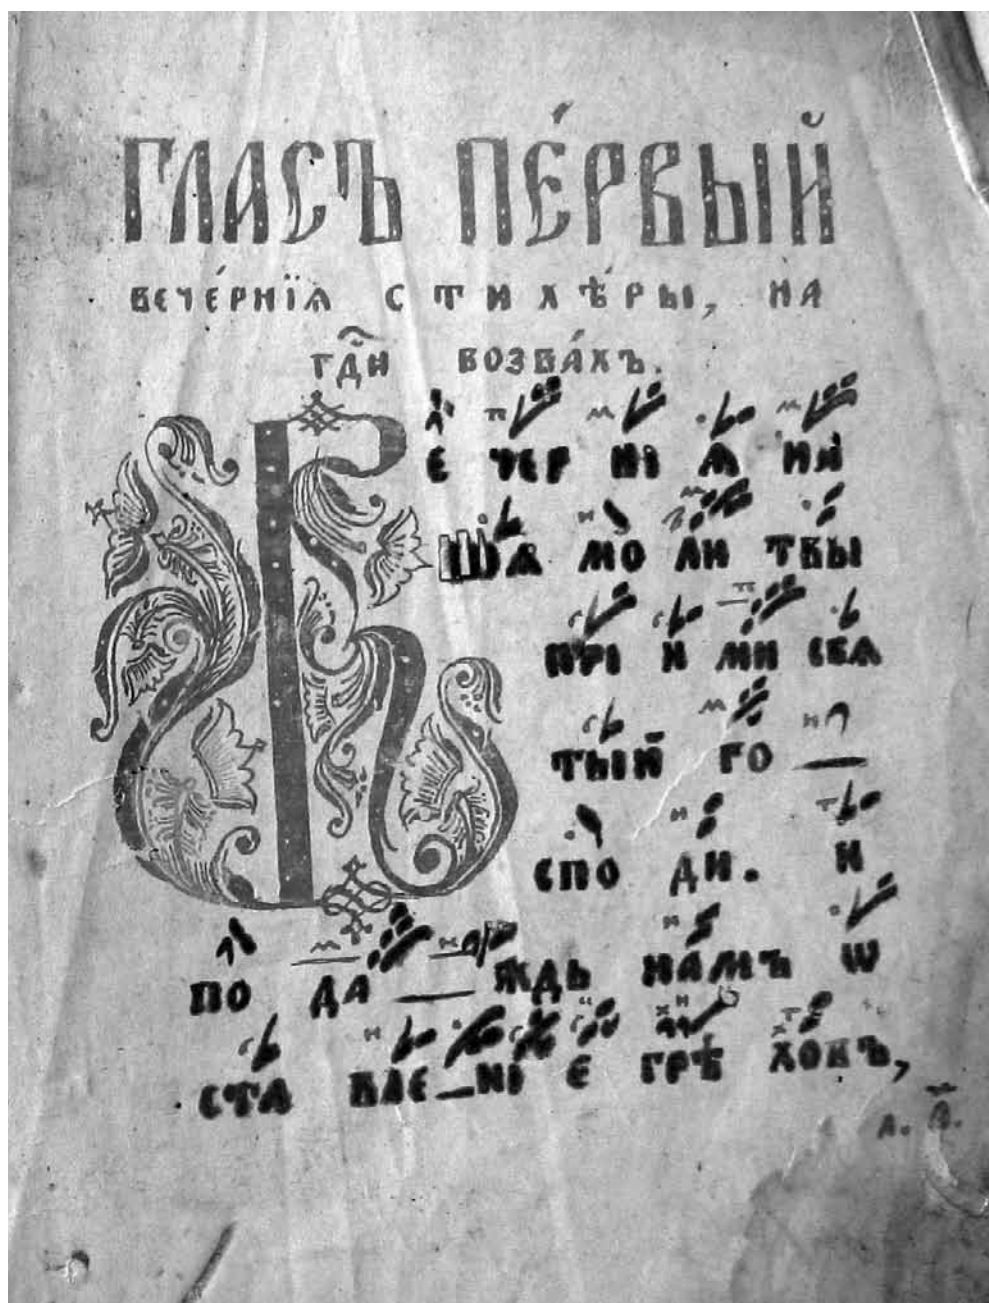 ГЛАСЪ ПЕ́РВЫЙ
ВЕЧЕ́РНЇѦ СТИХѢ́РЫ, НА
ГДⷭ҇И ВОЗВА́ХЪ.
В Е ЧЕР НІ Ѧ НА
ШѦ МО ЛИ ТВЫ
ПРІ И МИ СВѦ
ТЫЙ ГО —
СПО ДИ. И
ПО ДА — ЖДЬ НАМЪ Ѡ
СТА ВЛЕ — НІ Е ГРѢ ХОВЪ,